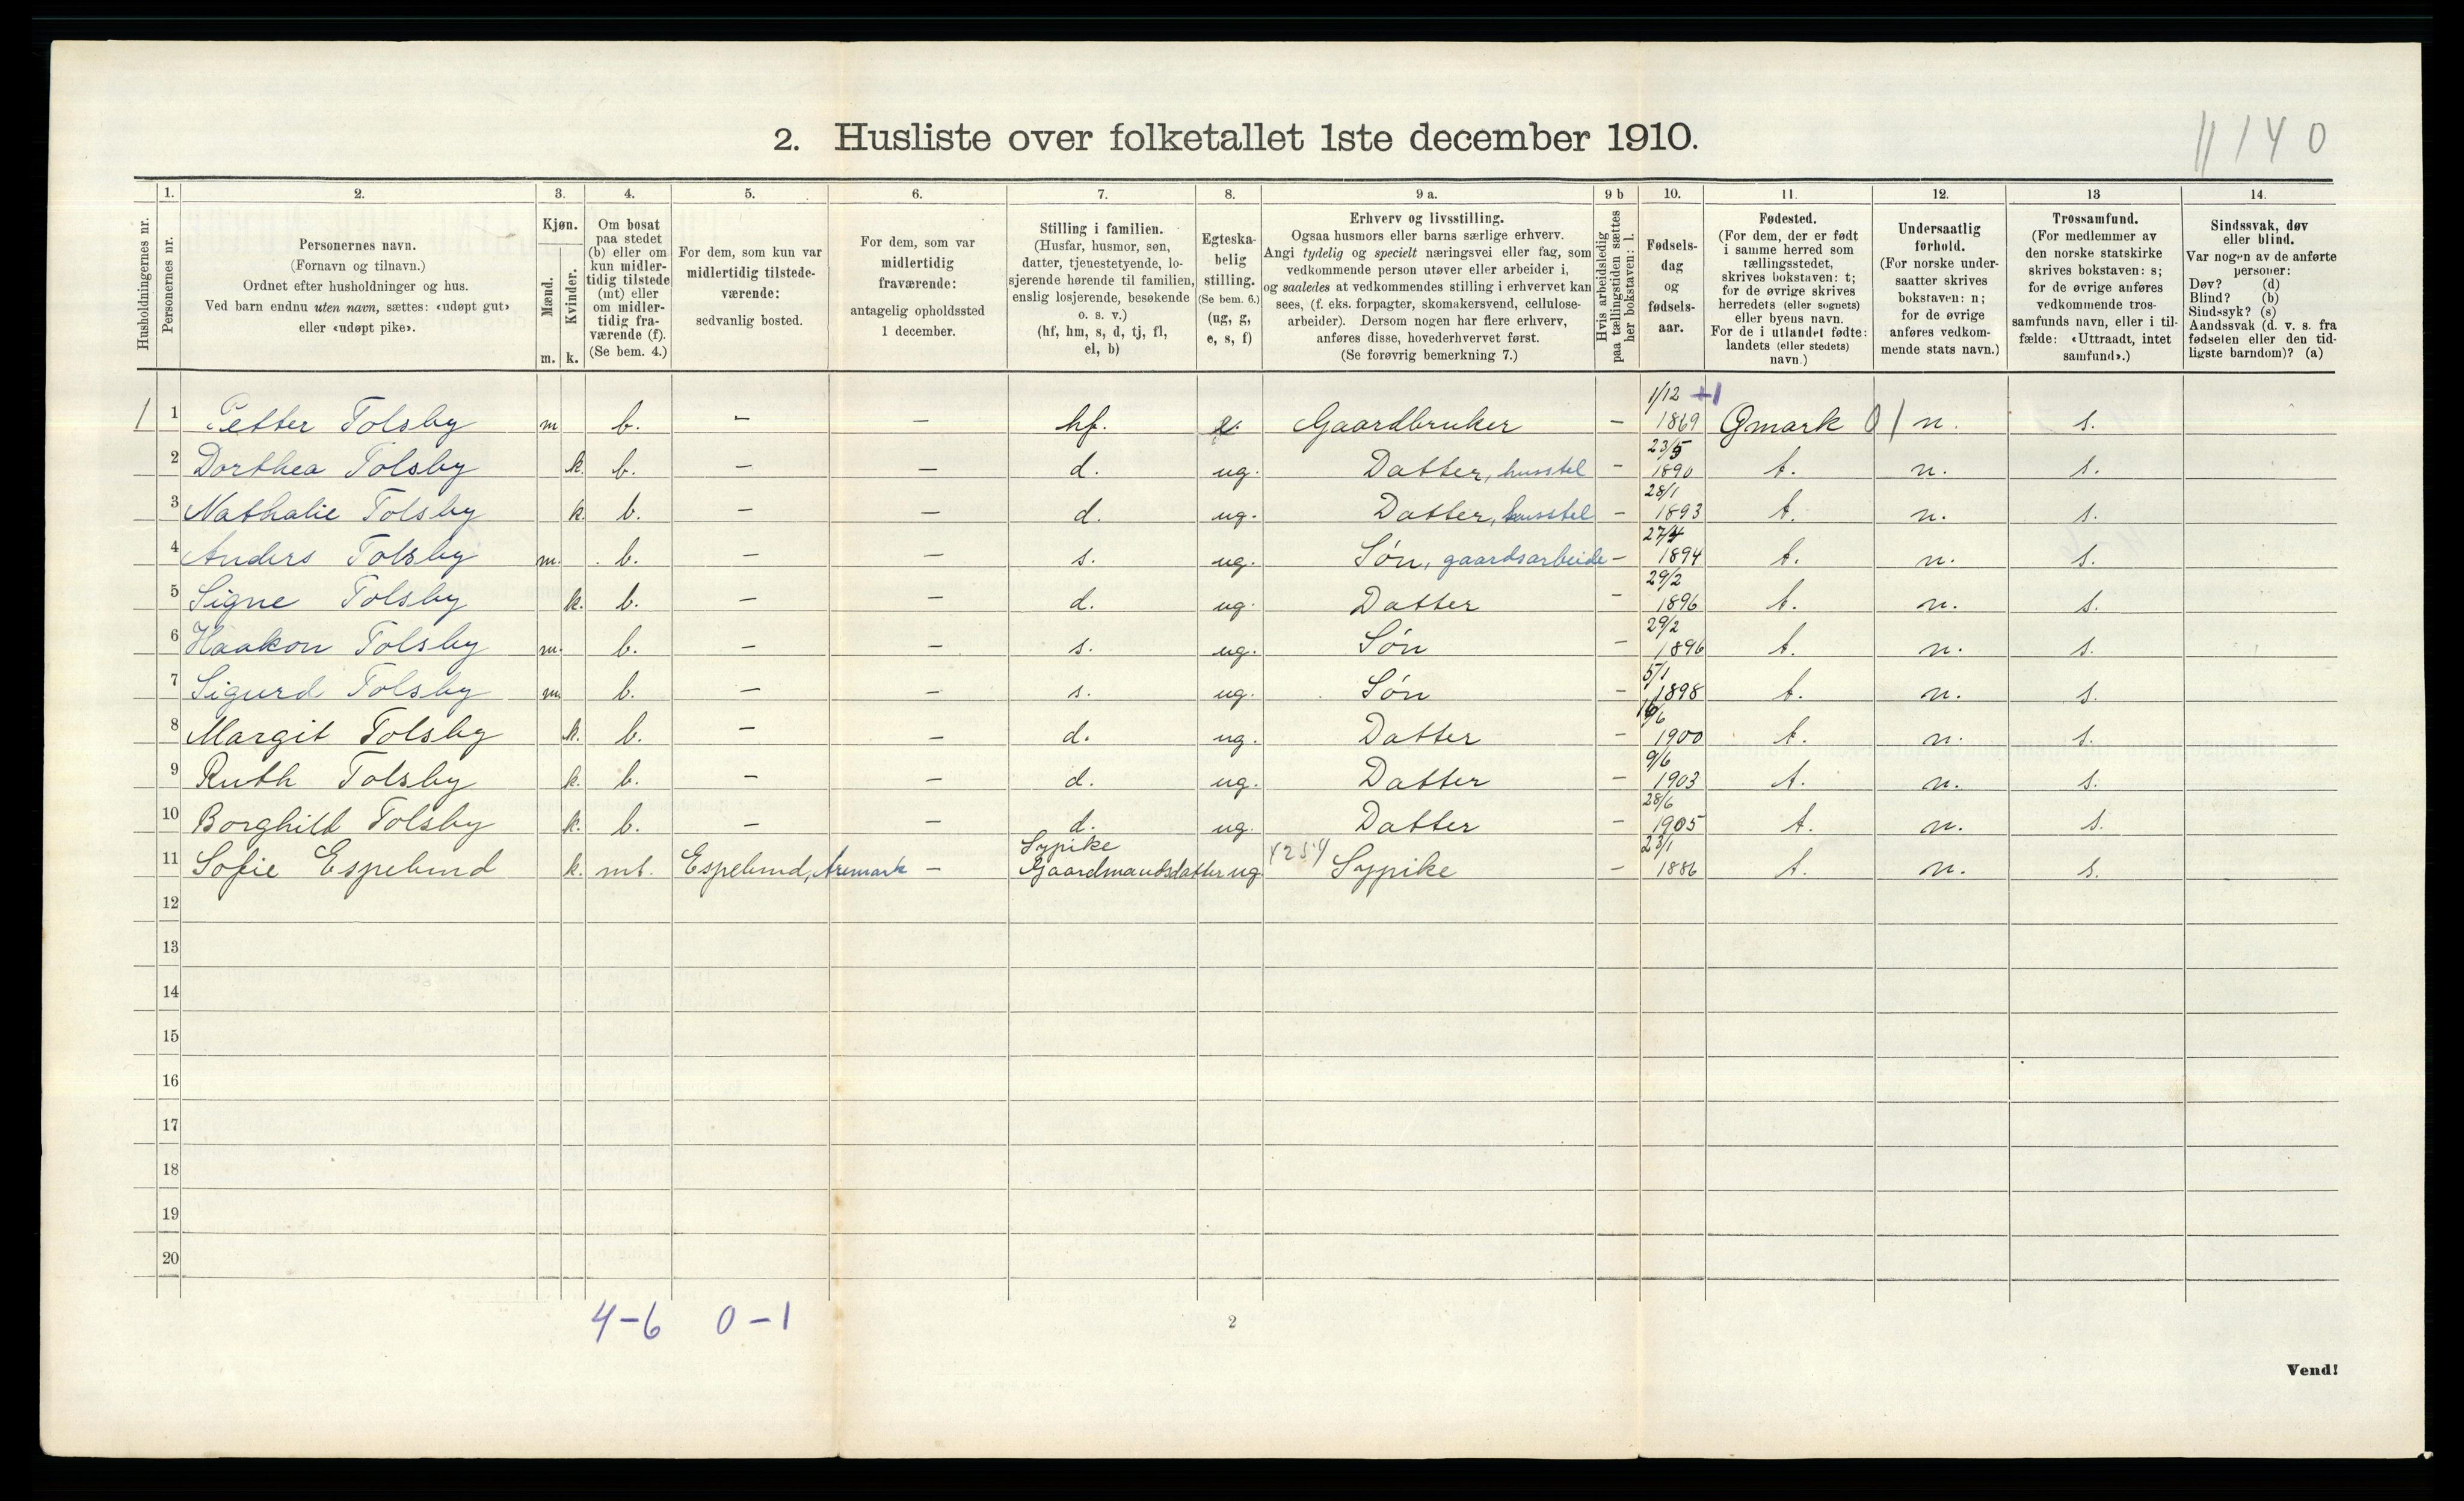 11140
2. Husliste over folketallet 1ste december 1910.
1. 2. 3. 4. 5. 6. 7. 8. 9 a. 9 b 10. 11. 12. 13 14.
Husholdningernes nr.
Personernes nr.
Personernes navn.
(Fornavn og tilnavn.)
Ordnet efter husholdninger og hus.
Ved barn endnu uten navn, sættes: «udøpt gut»
eller «udøpt pike».
Kjøn.
Mænd.
Kvinder.
m. k.
Om bosat
paa stedet
(b) eller om
kun midler-
tidig tilstede
(mt) eller
om midler-
tidig fra-
værende (f).
(Se bem. 4.)
For dem, som kun var
midlertidig tilstede-
værende:
sedvanlig bosted.
For dem, som var
midlertidig
fraværende:
antagelig opholdssted
1 december.
Stilling i familien.
(Husfar, husmor, søn,
datter, tjenestetyende, lo-
sjerende hørende til familien,
enslig losjerende, besøkende
o. s. v.)
(hf, hm, s, d, tj, fl,
el, b)
Egteska-
belig
stilling.
(Se bem. 6.)
(ug, g,
e, s, f)
Erhverv og livsstilling.
Ogsaa husmors eller barns særlige erhverv.
Angi tydelig og specielt næringsvei eller fag, som
vedkommende person utøver eller arbeider i,
og saaledes at vedkommendes stilling i erhvervet kan
sees, (f. eks. forpagter, skomakersvend, cellulose-
arbeider). Dersom nogen har flere erhverv,
anføres disse, hovederhvervet først.
(Se forøvrig bemerkning 7.)
Hvis arbeidsledig
paa tællingstiden sættes
her bokstaven: l.
Fødsels-
dag
og
fødsels-
aar.
Fødested.
(For dem, der er født
i samme herred som
tællingsstedet,
skrives bokstaven: t;
for de øvrige skrives
herredets (eller sognets)
eller byens navn.
For de i utlandet fødte:
landets (eller stedets)
navn.)
Undersaatlig
forhold.
(For norske under-
saatter skrives
bokstaven: n;
for de øvrige
anføres vedkom-
mende stats navn.)
Trossamfund.
(For medlemmer av
den norske statskirke
skrives bokstaven: s;
for de øvrige anføres
vedkommende tros-
samfunds navn, eller i til-
fælde: «Uttraadt, intet
samfund».)
Sindssvak, døv
eller blind.
Var nogen av de anførte
personer:
Døv? (d)
Blind? (b)
Sindssyk? (s)
Aandssvak (d. v. s. fra
fødselen eller den tid-
ligste barndom)? (a)
1 1 Petter Tolsby m b. - - hf. e. Gaardbruker - 1/12 +1 1869 Ømark 01 n. s.
2 Dorthea Tolsby k. b. - - d. ug. Datter, husstel - 23/5 1890 t. n. s.
3 Nathalie Tolsby k. b. - - d. ug. Datter, husstel - 28/1 1893 t. n. s.
4 Anders Tolsby m. b. - - s. ug. Søn, gaardsarbeide - 27/4 1894 t. n. s.
5 Signe Tolsby k. b. - - d. ug. Datter - 29/2 1896 t. n. s.
6 Haakon Tolsby m. b. - - s. ug. Søn - 29/2 1896 t. n. s.
7 Sigurd Tolsby m. b. - - s. ug. Søn - 5/1 1898 t. n. s.
8 Margit Tolsby k. b. - - d. ug. Datter - 1900 t. n. s.
9 Ruth Tolsby k. b. - - d. ug. Datter - 9/6 1903 t. n. s.
10 Borghild Tolsby k. b. - - d. ug. Datter - 28/6 1905 t. n. s.
11 Sofie Espelund k. mt. Espelund, Aremark - Sypike Gaardmandsdatter ug Sypike - 23/1 1886 t. n. s.
12
13
14
15
16
17
18
19
20
4-6 0-1
2
Vend!